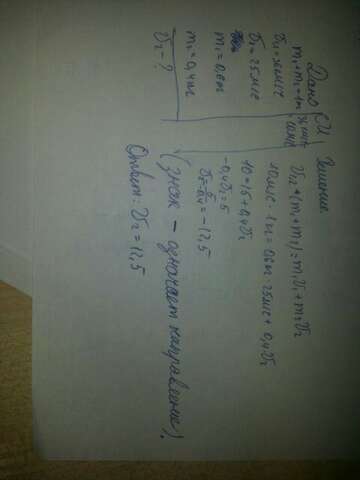 Дано
m₁+m₂=1кг
υ₁₂=36км/ч
υ₁=25м/с
m₁=0,6кг
m₂=0,4кг
υ₂-?
СИ
36 км/ч
10м/с
Решение
υ₁₂*(m₁+m₂)=m₁υ₁+m₂υ₂
10м/с·1кг=0,6кг·25м/с+0,4υ₂
10=15+0,4υ₂
-0,4υ₂=5
=-12,5
(знак - означает направление).
Ответ: υ₂=12,5